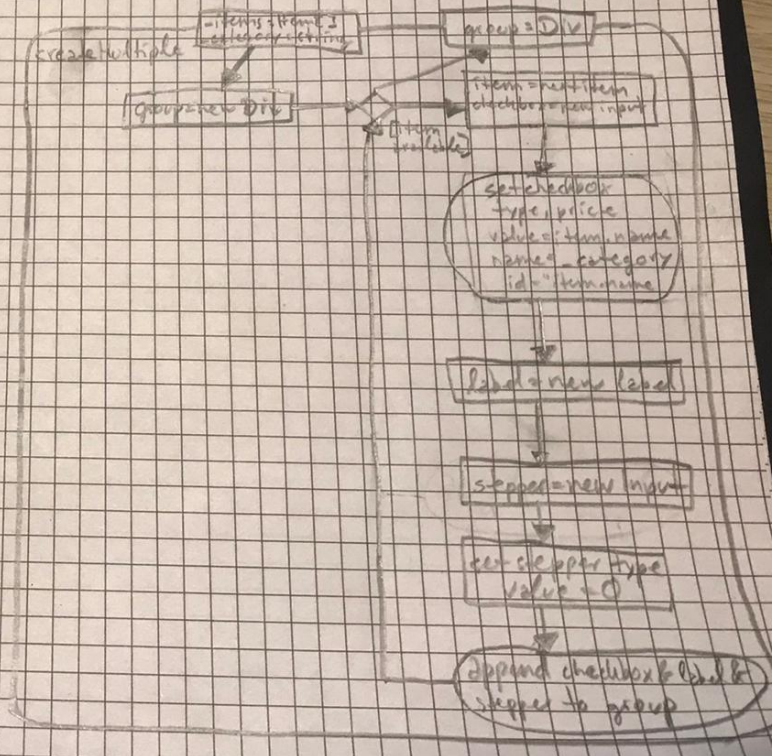 createMultiple
_items: Item[]
_category: string
group = Div
group = new Div
item = next item
checkbox = new input
[item
available]
set checkbox
type, price
value = item.name
name = _category
id = item.name
label = new label
stepper = new Input
set stepper type
value = 0
append checkbox & label &
stepper to group